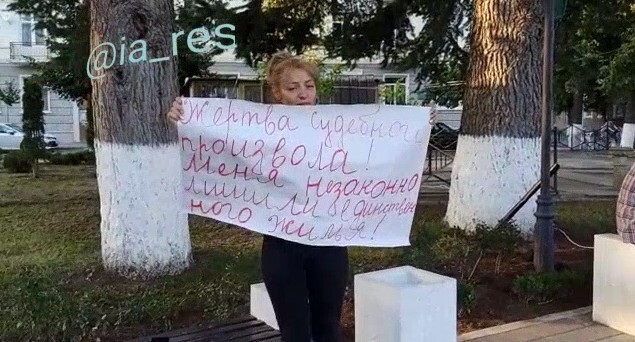 @ia_res
Жертва судебного
произвола!
Меня незаконно
лишили единствен
ного жилья!